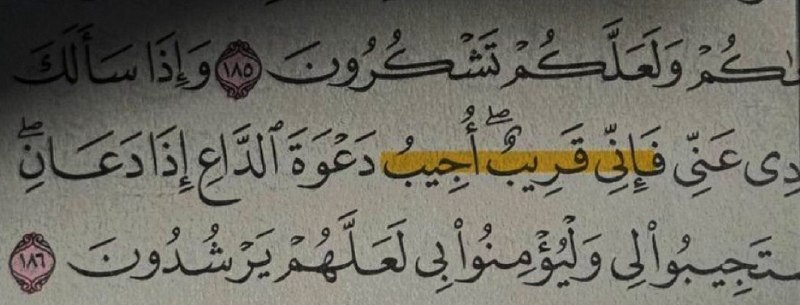 ىٰكُمْ وَلَعَلَّكُمْ تَشْكُرُونَ ١٨٥ وَإِذَا سَأَلَكَ
دِى عَنِّى فَإِنِّى قَرِيبٌ ۖ أُجِيبُ دَعْوَةَ ٱلدَّاعِ إِذَا دَعَانِ ۖ
سْتَجِيبُوا۟ لِى وَلْيُؤْمِنُوا۟ بِى لَعَلَّهُمْ يَرْشُدُونَ ١٨٦